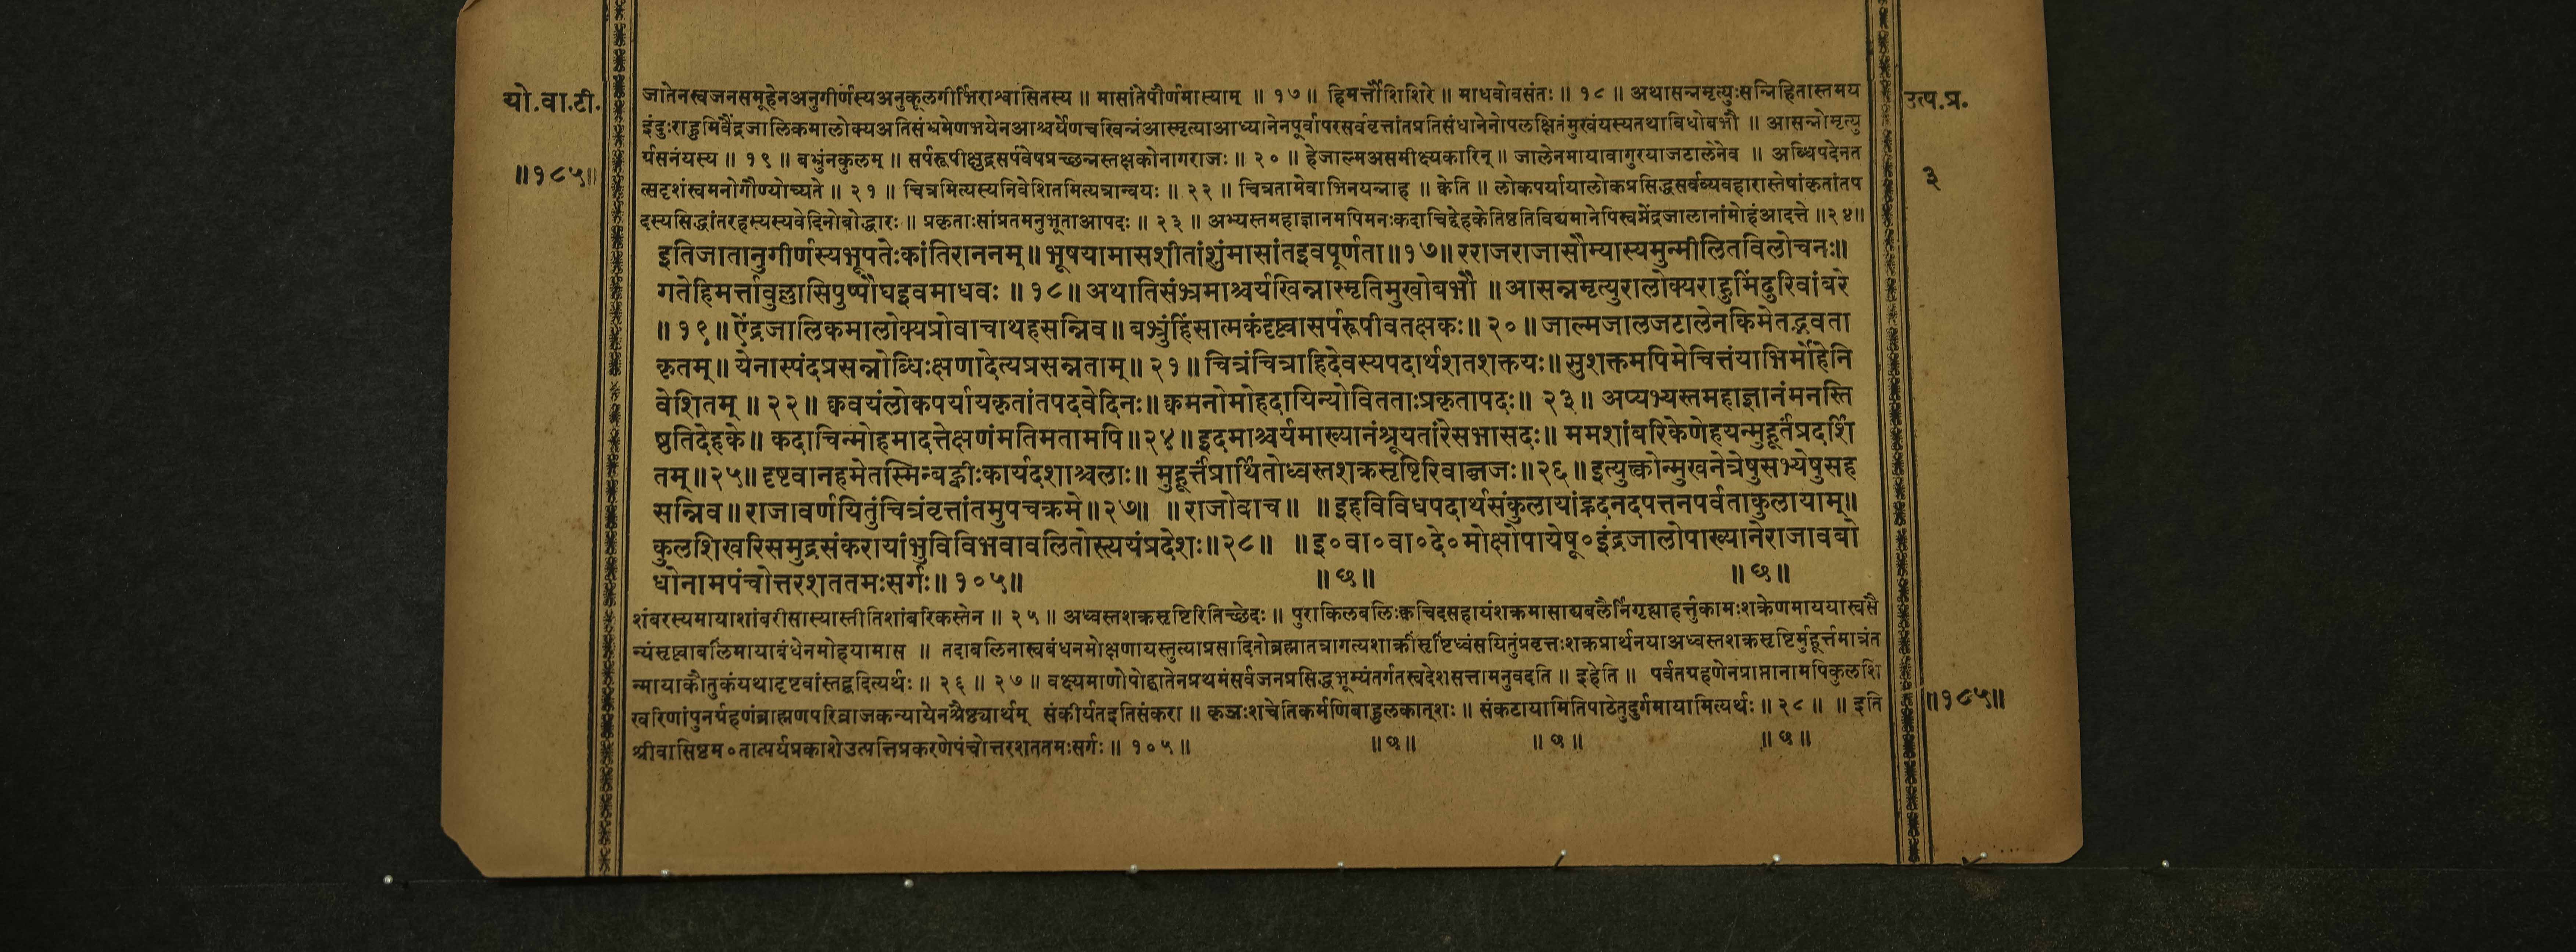 यो.वा.टी.
॥१८५॥
जातेनस्वजनसमूहेनअनुगीर्णस्यअनुकूलगीर्भिराश्वासितस्य ॥ मासांतेपौर्णमास्याम् ॥ १७ ॥ हिमर्त्तौशिशिरे ॥ माधवोवसंतः ॥ १८ ॥ अथासन्नमृत्युःसन्निहितास्तमय
इंदुःराहुमिवैंद्रजालिकमालोक्यअतिसंभ्रमेणभयेनआश्चर्येणचखिन्नंआस्मृत्याआध्यानेनपूर्वापरसर्ववृत्तांतप्रतिसंधानेनोपलक्षितंमुखंयस्यतथाविधोबभौ ॥ आसन्नोमृत्यु
र्यसनंयस्य ॥ १९ ॥ बभ्रुंनकुलम् ॥ सर्परूपीक्षुद्रसर्पवेषप्रच्छन्नस्तक्षकोनागराजः ॥ २० ॥ हेजाल्मअसमीक्ष्यकारिन् ॥ जालेनमायावागुरयाजटालेनेव ॥ अब्धिपदेनत
त्सदृशंस्वमनोगौण्योच्यते ॥ २१ ॥ चित्रमित्यस्यनिवेशितमित्यत्रान्वयः ॥ २२ ॥ चित्रतामेवाभिनयन्नाह ॥ क्वेति ॥ लोकपर्यायालोकप्रसिद्धसर्वव्यवहारास्तेषांकृतांतप
दस्यसिद्धांतरहस्यस्यवेदिनोबोद्धारः ॥ प्रकृताःसांप्रतमनुभूताआपदः ॥ २३ ॥ अभ्यस्तमहाज्ञानमपिमनःकदाचिद्देहकेतिष्ठतिविद्यमानेपिस्वमेंद्रजालानांमोहंआदत्ते ॥२४॥
इतिजातानुगीर्णस्यभूपतेःकांतिराननम् ॥ भूषयामासशीतांशुंमासांतइवपूर्णता ॥१७॥ रराजराजासौम्यास्यमुन्मीलितविलोचनः॥
गतेहिमर्त्तावुल्लासिपुष्पौघइवमाधवः ॥ १८॥ अथातिसंभ्रमाश्चर्यखिन्नास्मृतिमुखोबभौ ॥ आसन्नमृत्युरालोक्यराहुमिंदुरिवांबरे
॥ १९ ॥ ऐंद्रजालिकमालोक्यप्रोवाचाथहसन्निव ॥ बभ्रुंहिंसात्मकंदृष्ट्वासर्परूपीवतक्षकः ॥ २० ॥ जाल्मजालजटालेनकिमेतद्भवता
कृतम् ॥ येनास्पंदप्रसन्नोब्धिःक्षणादेत्यप्रसन्नताम् ॥ २१ ॥ चित्रंचित्राहिदेवस्यपदार्थशतशक्तयः॥ सुशक्तमपिमेचित्तंयाभिर्मोहेनि
वेशितम् ॥ २२ ॥ क्ववयंलोकपर्यायकृतांतपदवेदिनः॥ क्वमनोमोहदायिन्योवितताःप्रकृतापदः॥ २३ ॥ अप्यभ्यस्तमहाज्ञानंमनस्ति
ष्ठतिदेहके ॥ कदाचिन्मोहमादत्तेक्षणंमतिमतामपि ॥२४॥ इदमाश्चर्यमाख्यानंश्रूयतांरेसभासदः॥ ममशांबरिकेणेहयन्मुहूर्तंप्रदर्शि
तम् ॥२५॥ दृष्टवानहमेतस्मिन्बह्वीःकार्यदशाश्चलाः॥ मुहूर्त्तंप्रार्थितोध्वस्तशक्रसृष्टिरिवाब्जजः॥२६॥ इत्युक्त्वोन्मुखनेत्रेषुसभ्येषुसह
सन्निव ॥ राजावर्णयितुंचित्रंवृत्तांतमुपचक्रमे ॥२७॥ ॥ राजोवाच ॥ ॥ इहविविधपदार्थसंकुलायांह्रदनदपत्तनपर्वताकुलायाम् ॥
कुलशिखरिसमुद्रसंकरायांभुविविभवावलितोस्त्ययंप्रदेशः॥२८॥ ॥ इ॰वा॰वा॰दे॰मोक्षोपायेषू॰इंद्रजालोपाख्यानेराजावबो
धोनामपंचोत्तरशततमःसर्गः॥ १०५॥ ॥ छ ॥ ॥ छ ॥
शंबरस्यमायाशांबरीसास्यास्तीतिशांबरिकस्तेन ॥ २५ ॥ अध्वस्तशक्रसृष्टिरितिच्छेदः ॥ पुराकिलबलिःक्वचिदसहायंशक्रमासाद्यबलैर्निगृह्याहर्त्तुकामःशक्रेणमाययास्वसै
न्यंसृष्ट्वाबलिंमायाबंधेनमोहयामास ॥ तदाबलिनास्वबंधनमोक्षणायस्तुत्याप्रसादितोब्रह्मातत्रागत्यशाक्रींसृष्टिंध्वंसयितुंप्रवृत्तःशक्रप्रार्थनयाअध्वस्तशक्रसृष्टिर्मुहूर्त्तमात्रंत
न्मायाकौतुकंयथादृष्टवांस्तद्वदित्यर्थः ॥ २६ ॥ २७ ॥ वक्ष्यमाणोपोद्घातेनप्रथमंसर्वजनप्रसिद्धभूम्यंतर्गतस्वदेशसत्तामनुवदति ॥ इहेति ॥ पर्वतग्रहणेनप्राप्तानामपिकुलशि
खरिणांपुनर्ग्रहणंब्राह्मणपरिव्राजकन्यायेनश्रैष्ठ्यार्थम् संकीर्यतइतिसंकरा ॥ कृञःशचेतिकर्मणिबाहुलकात्‌शः ॥ संकटायामितिपाठेतुदुर्गमायामित्यर्थः ॥ २८ ॥ ॥ इति
श्रीवासिष्ठम॰तात्पर्यप्रकाशेउत्पत्तिप्रकरणेपंचोत्तरशततमःसर्गः ॥ १०५ ॥ ॥ छ ॥ ॥ छ ॥ ॥ छ ॥
उत्प.प्र.
३
॥१८५॥